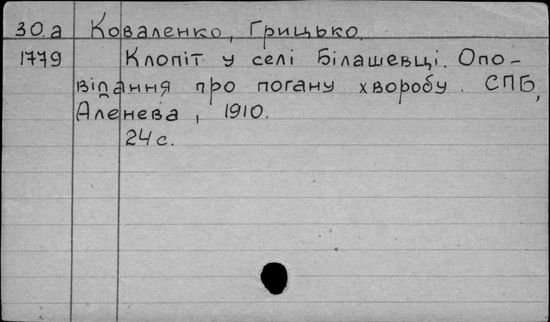 30.а Коваленко, Грицько.
1779 Клопіт у селі Білашевці. Опо-
відання про погану хворобу. СПБ,
Аленева, 1910.
24 с.